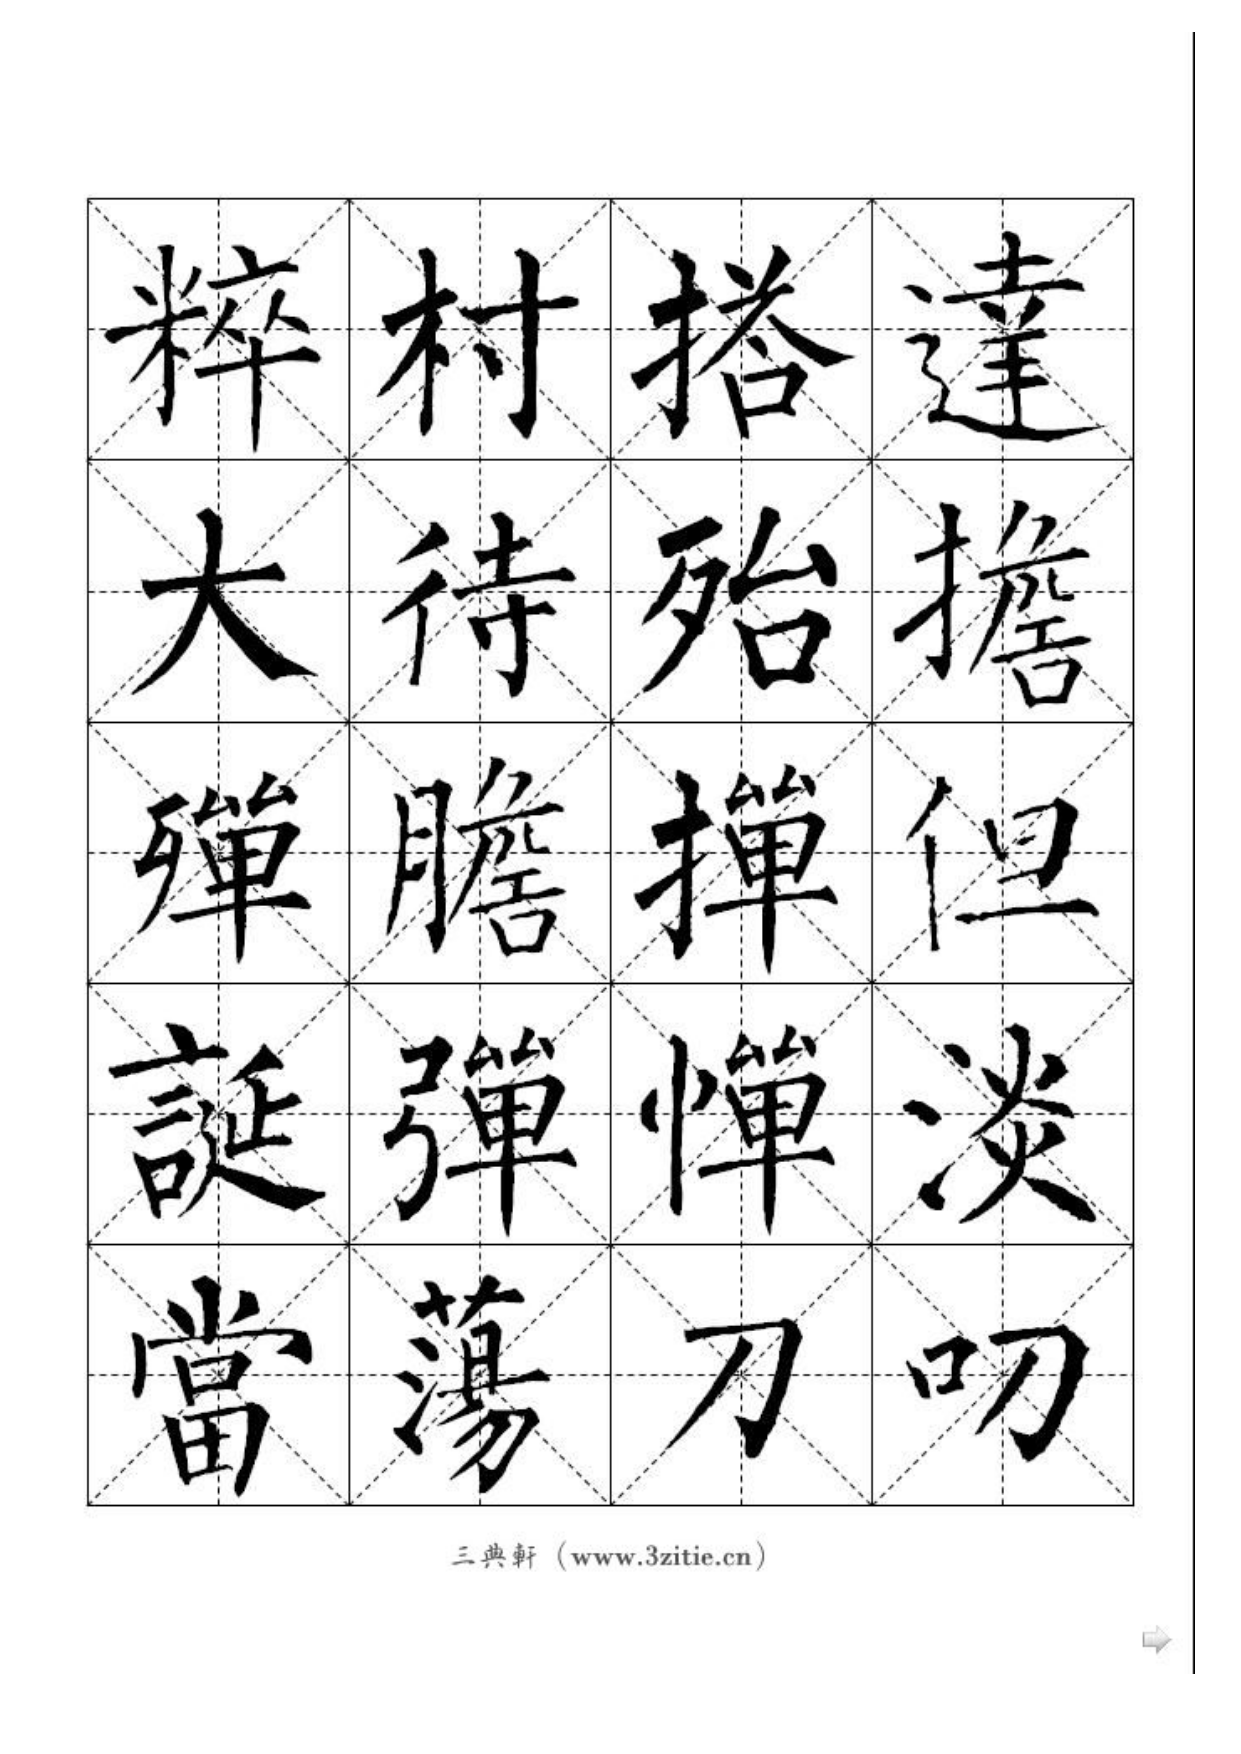 粹村搭達
大待殆擔
殫膽撣但
誕彈憚淡
當蕩刀叨
三典軒（www.3zitie.cn）